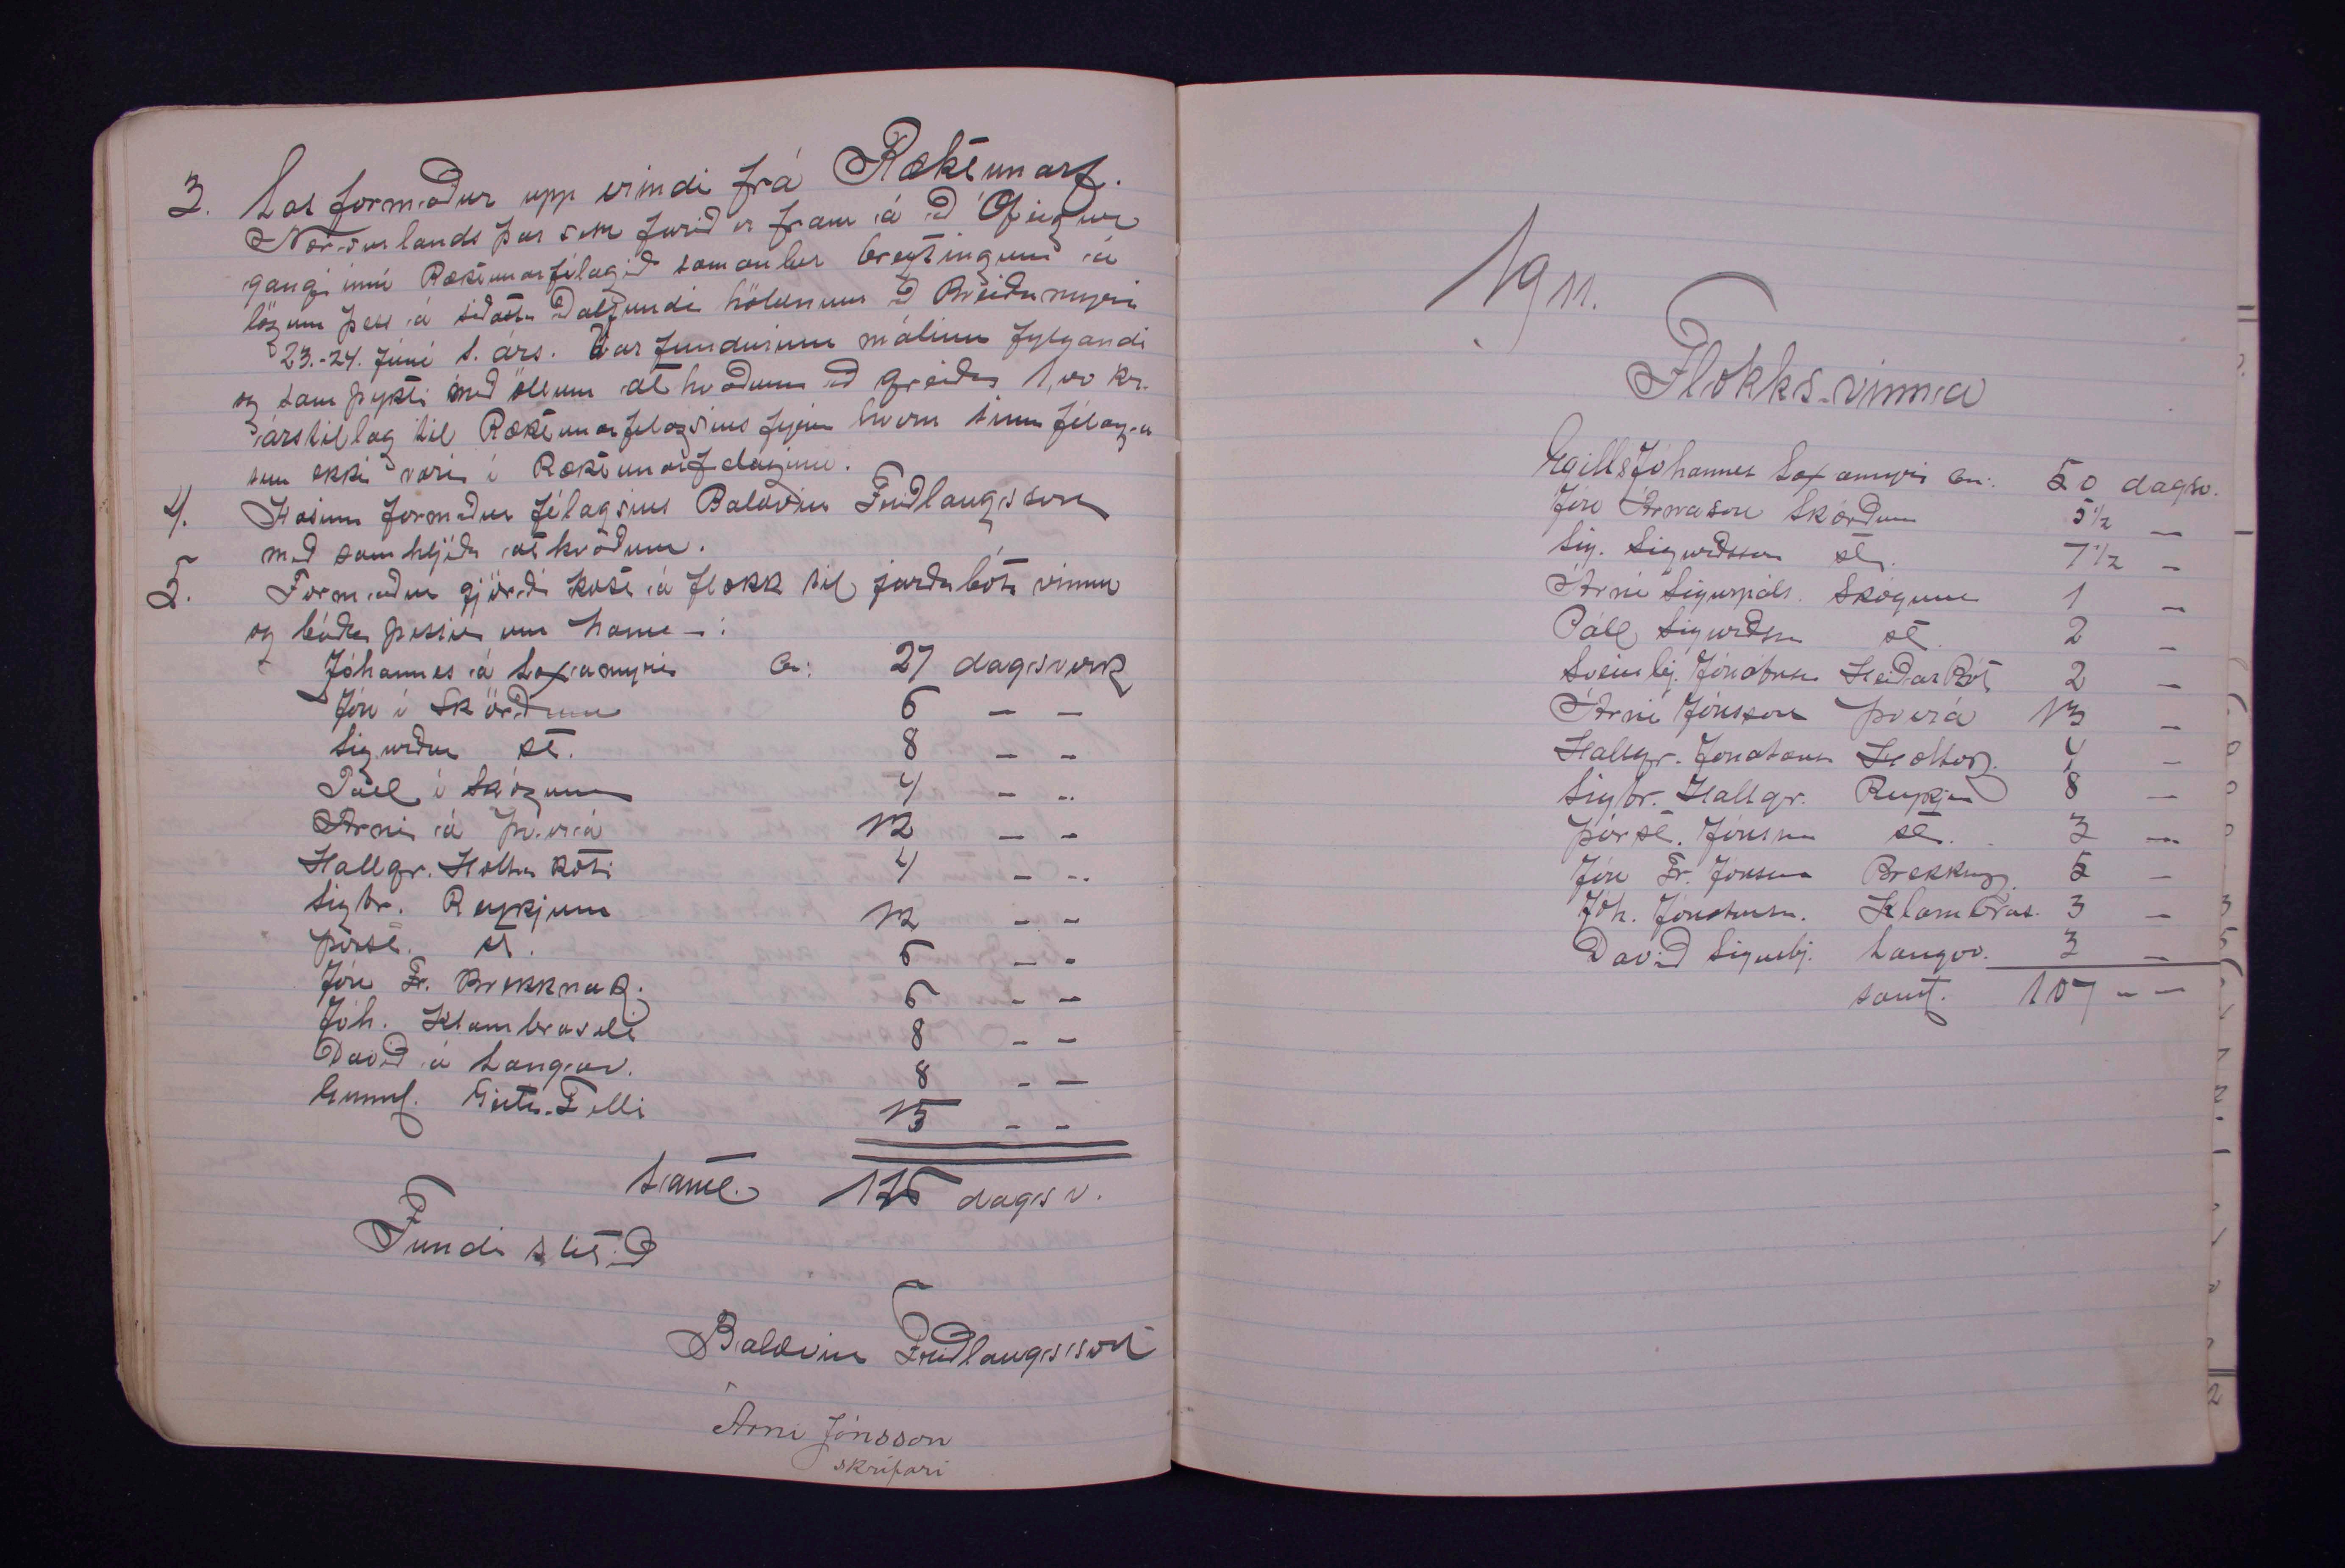 3. Las formaður upp erindi frá Ræktunarf.
Norðurlands þar sem farið er fram á að Ófeigur
gangi inní Ræktunarfélagið samanber breytingum á
lögum þess á síðasta aðalfundi höldnum að Breiðumýri
23.-24. Júní s. árs. Var fundurinn málinu fylgjandi
og samþykti með öllum atkvæðum að greiða 1,00 kr.
árstillag til Ræktunarfélagsins fyrir hvern sinn félaga
sem ekki væri í Ræktunarfélaginu.
4. Kosinn formaður félagsins Baldvin Friðlaugsson
með samhljóða atkvæðum.
5. Formaður gjörði kost á flokk til jarðabóta vinnu
og báðu þessir um hann —:
Jóhannes á Laxamýri ca: 27 dagsverk
Jón í Skörðum 6 — —
Sigurður st. 8 — —
Páll í Skógum 4 — —
Árni á Þverá 12 — —
Hallgr. Holtakoti 4 — —
Sigtr. Reykjum 12 — —
Þorst. st. 6 — —
Jón Fr. Brekknak. 6 — —
Jóh. Klambraseli 8 — —
Davið á Langav. 8 — —
Gunnl. Geita-Felli 15 — —
Samt. 116 dagsv.
Fundi slitið
Baldvin Friðlaugsson
Árni Jónsson
skrifari
1911.
Flokks-vinna
Egill & Jóhannes Laxamýri ca: 50 dagsv.
Jón Árnason Skörðum 5 1/2 —
Sig. Sigurðsson st. 7 1/2 —
Árni Sigurpáls. Skógum 1 —
Páll Sigurðsson st. 2 —
Sveinbj. Jónatanss. Heiðarbót 2 —
Árni Jónsson Þverá 13 —
Hallgr. Jónatanss. Holtak. 4 —
Sigtr. Hallgr. Reykjum 8 —
Þorst. Jónsson st. 3 —
Jón Fr. Jónsson Brekknak. 5 —
Jóh. Jónatanss. Klambras. 3 —
Davið Sigurbj. Langav. 3 —
samt. 107 — —